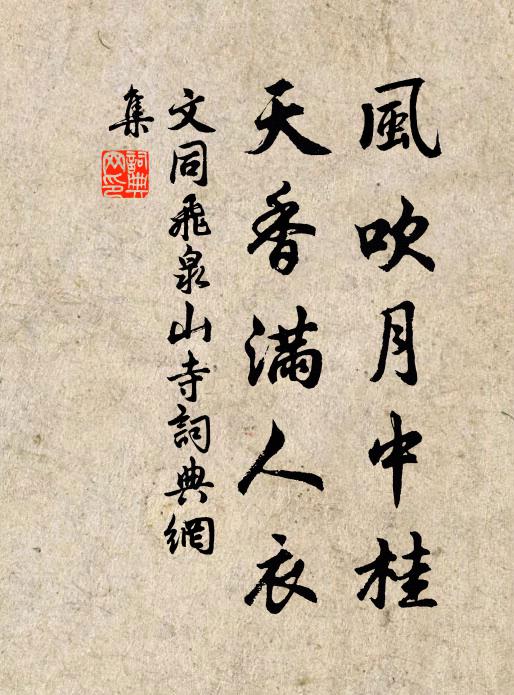 風吹月中桂
天香滿人衣
文同飛泉山寺詞典網
集
詞典
网印